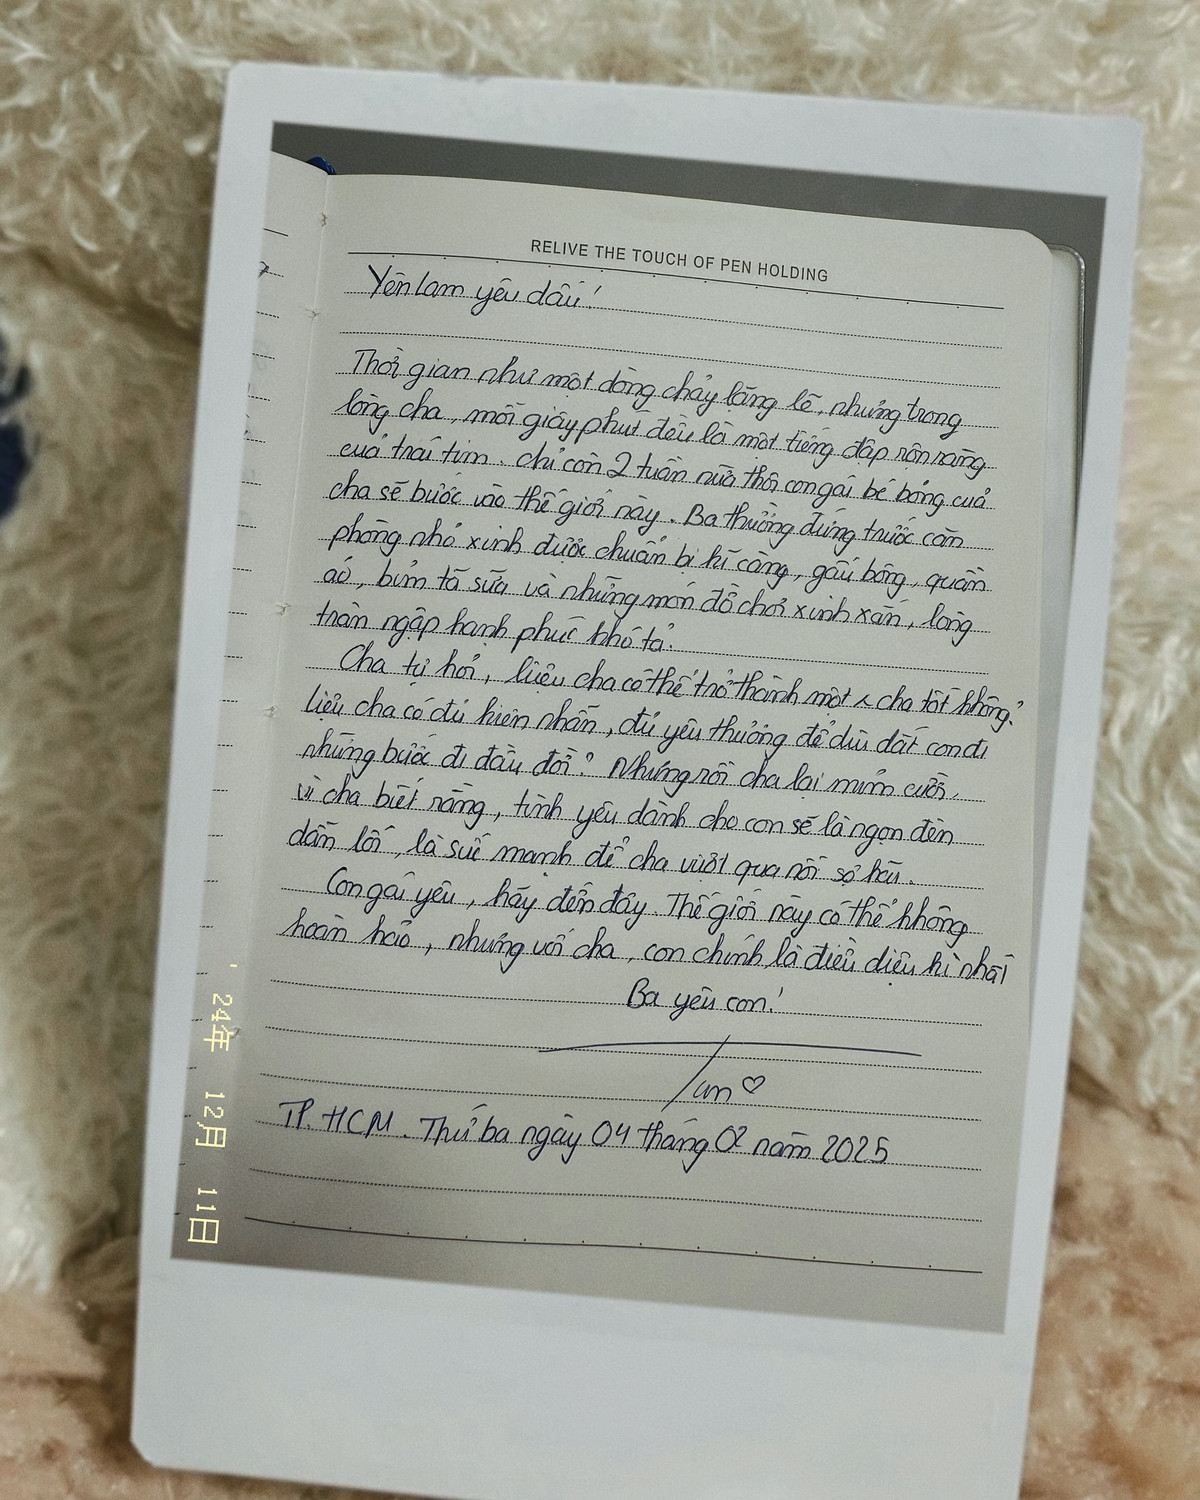 RELIVE THE TOUCH OF PEN HOLDING
Yên Lam yêu dấu!
Thời gian như một dòng chảy lặng lẽ, nhưng trong
lòng cha, mỗi giây phút đều là một tiếng đập rộn ràng
của trái tim. Chỉ còn 2 tuần nữa thôi con gái bé bỏng của
cha sẽ bước vào thế giới này. Ba thường đứng trước căn
phòng nhỏ xinh được chuẩn bị kĩ càng, gấu bông, quần
áo, bỉm tã sữa và những món đồ chơi xinh xắn, lòng
tràn ngập hạnh phúc khó tả.
Cha tự hỏi, liệu cha có thể trở thành một cha tốt không?
liệu cha có đủ kiên nhẫn, đủ yêu thương để dìu dắt con đi
những bước đi đầu đời? Nhưng rồi cha lại mỉm cười,
vì cha biết rằng, tình yêu dành cho con sẽ là ngọn đèn
dẫn lối, là sức mạnh để cha vượt qua nỗi sợ hãi.
Con gái yêu, hãy đến đây. Thế giới này có thể không
hoàn hảo, nhưng với cha, con chính là điều diệu kì nhất
Ba yêu con!
TP. HCM. Thứ ba ngày 04 tháng 02 năm 2025
'24年 12月 11日